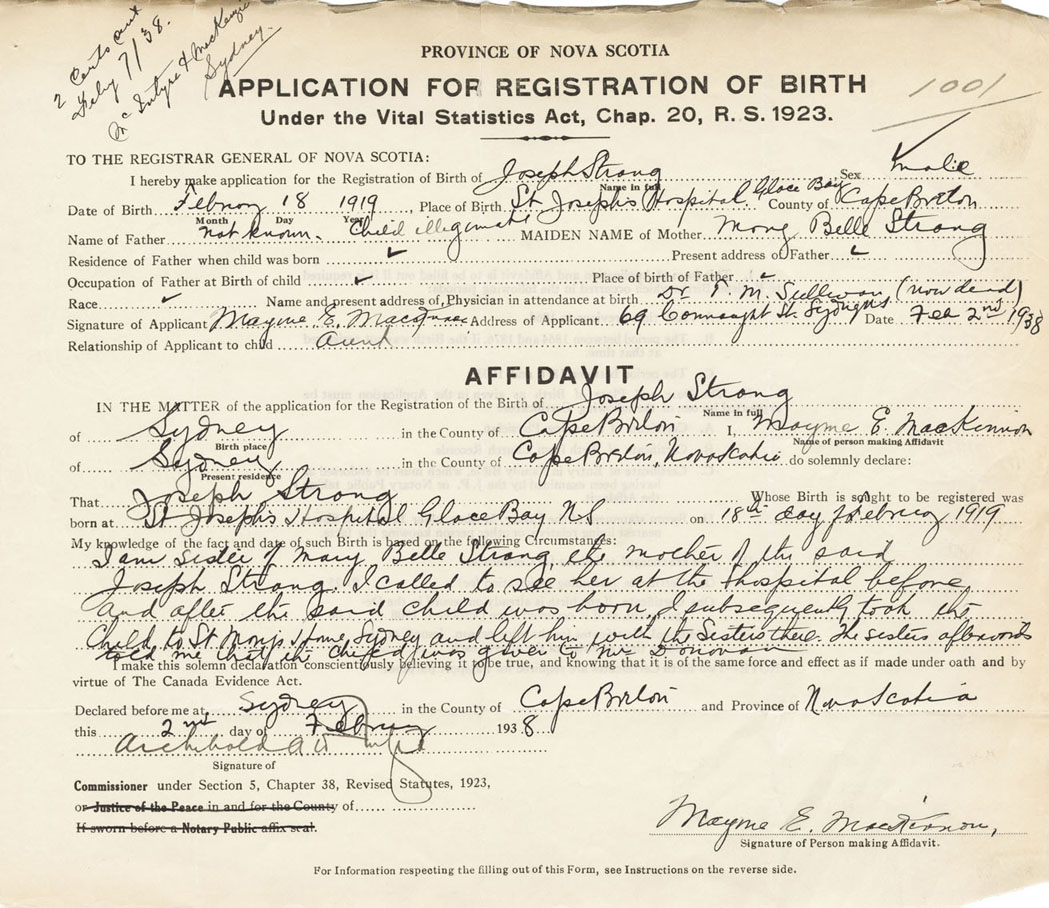 2 Certs out
Feby 7/38.
Mc Intyre & MacKenzie
Sydney.
PROVINCE OF NOVA SCOTIA
APPLICATION FOR REGISTRATION OF BIRTH
1001
Under the Vital Statistics Act, Chap. 20, R. S. 1923.
TO THE REGISTRAR GENERAL OF NOVA SCOTIA:
I hereby make application for the Registration of Birth of Joseph Strong Sex Male
Name in full
Date of Birth February 18 1919, Place of Birth St Joseph's Hospital, Glace Bay County of Cape Breton
Month Day Year
Name of Father not known. Child illegimate MAIDEN NAME of Mother Mary Belle Strong
Residence of Father when child was born ✓ Present address of Father ✓
Occupation of Father at Birth of child ✓ Place of birth of Father ✓
Race ✓ Name and present address of Physician in attendance at birth Dr T. M. Sullivan (now dead)
Signature of Applicant Mayme E. MacKinnon Address of Applicant 69 Connaught St. Sydney NS Date Feb 2nd 1938
Relationship of Applicant to child aunt
AFFIDAVIT
IN THE MATTER of the application for the Registration of the Birth of Joseph Strong
Name in full
of Sydney in the County of Cape Breton I, Mayme E. MacKinnon
Birth place Name of person making Affidavit
of Sydney in the County of Cape Breton, Nova Scotia do solemnly declare:
Present residence
That Joseph Strong Whose Birth is sought to be registered was
born at St Joseph's Hospital Glace Bay NS on 18th day of February 1919
My knowledge of the fact and date of such Birth is based on the following Circumstances:
I am Sister of Mary Belle Strong, the mother of the said
Joseph Strong. I called to see her at the Hospital before
and after the said child was born, I subsequently took the
Child to St Mary's Home, Sydney and left him with the Sisters there. The sisters afterwards
told me that the child was given to Mr Donovan
I make this solemn declaration conscientiously believing it to be true, and knowing that it is of the same force and effect as if made under oath and by
virtue of The Canada Evidence Act.
Declared before me at Sydney in the County of Cape Breton and Province of Nova Scotia
this 2nd day of February 1938
Archibald A
Signature of
Commissioner under Section 5, Chapter 38, Revised Statutes, 1923,
or Justice of the Peace in and for the County of
If sworn before a Notary Public affix seal.
Mayme E. MacKinnon,
Signature of Person making Affidavit.
For Information respecting the filling out of this Form, see Instructions on the reverse side.